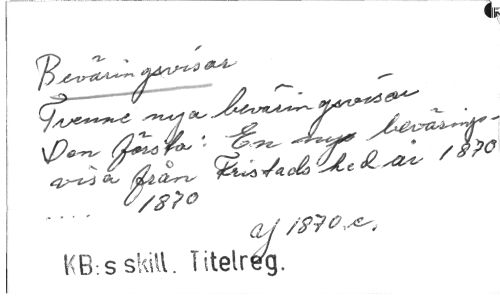 Beväringsvisor
Tvenne nya beväringsvisor
Den första: En ny bevärings-
visa från Fristads hed år 1870
.... 1870
Y 1870.c.
KB:s skill. Titelreg.